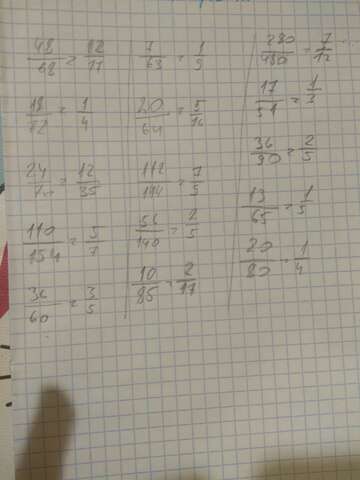 48/68 = 12/17
18/72 = 1/4
24/70 = 12/35
110/154 = 5/7
36/60 = 3/5
7/63 = 1/9
20/64 = 5/16
56/140 = 2/5
10/85 = 2/17
280/480 = 7/12
17/51 = 1/3
36/90 = 2/5
13/65 = 1/5
20/80 = 1/4